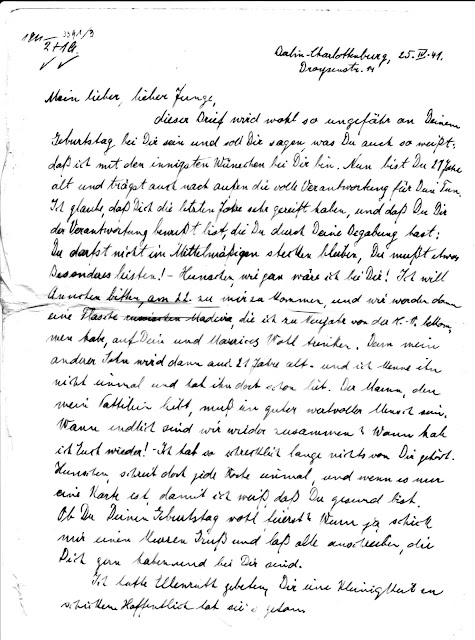 3391/3
2+1 B.
Berlin-Charlottenburg, 25. IV. 41.
Droysenstr. 11
Mein lieber, lieber Junge,
dieser Brief wird wohl so ungefähr an Deinem
Geburtstag bei Dir sein und soll Dir sagen, was Du auch so weißt:
daß ich mit den innigsten Wünschen bei Dir bin. Nun bist Du 21 Jahre
alt und trägst auch nach außen die volle Verantwortung für Dein Tun.
Ich glaube, daß Dich die letzten Jahre sehr gereift haben, und daß Du Dir
der Verantwortung bewußt bist, die Du durch Deine Begabung hast:
Du darfst nicht im Mittelmäßigen stecken bleiben, Du mußt etwas
Besonderes leisten! - wie gern wäre ich bei Dir! Ich will
Annchen bitten, am 22. zu mir zu kommen, und wir werden dann
eine Flasche Madeira, die ich zu Neujahr von der
habe, auf Dein und Wohl trinken. Denn mein
anderer Sohn wird dann auch 21 Jahre alt - und ich kenne ihn
nicht einmal und hab ihn doch schon lieb. Der Mann, den
mein liebt, muß ein guter wertvoller Mensch sein.
Wann endlich sind wir wieder zusammen? Wann hab
ich Euch wieder! - Ich hab so schrecklich lange nichts von Dir gehört.
schreib doch jede Woche einmal, und wenn es nur
eine Karte ist, damit ich weiß, daß Du gesund bist.
Ob Du Deinen Geburtstag wohl feierst? Wenn ja, schick
mir einen Gruß und laß alle unterschreiben, die
Dich gern haben und bei Dir sind.
Ich hatte Ellenruth gebeten, Dir eine Kleinigkeit zu
schicken. Hoffentlich hat sie's getan